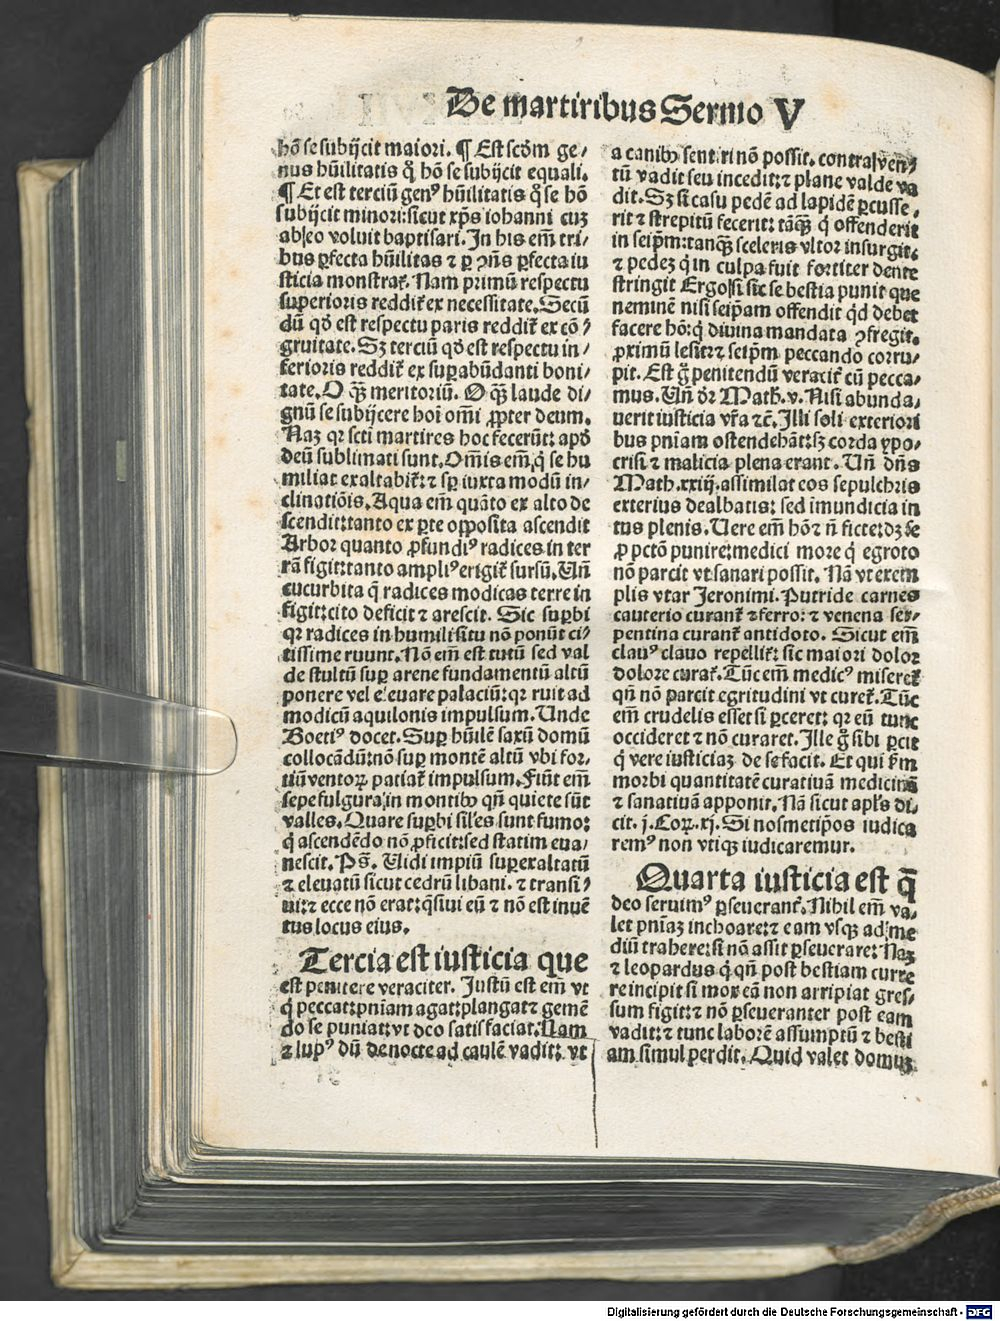 De martiribus Sermo V
hō se subijcit maiori. ¶ Est scd̄m ge/
nus hūilitatis q̄ hō se subijcit equali.
¶ Et est terciū genꝰ hūilitatis q̄ se hō
subijcit minori: sicut xp̄s iohanni cuꝫ
ab eo voluit baptisari. In his em̄ tri/
bus ꝑfecta hūilitas ⁊ ꝑ ↄn̄s ꝑfecta iu
sticia monstrat̄. Nam primū respectu
superioris reddit̄ ex necessitate. Secū
dū qd̄ est respectu paris reddit̄ ex cō/
gruitate. Sꝫ terciū qd̄ est respectu in/
ferioris reddit̄ ex suꝑabūdanti boni/
tate. O q̄ꝫ meritoriū. O q̄ꝫ laude di/
gnū se subijcere hoī om̄i ꝓpter deum.
Naꝫ qꝛ scti martires hoc fecerūt: apd̄
deū sublimati sunt. Om̄is em̄ q̄ se hu
miliat exaltabit̄: ⁊ sꝑ iuxta modū in/
clinatiōis. Aqua em̄ quāto ex alto de
scendit: tanto ex ꝑte opposita ascendit
Arbor quanto ꝓfundiꝰ radices in ter
rā figit: tanto ampliꝰ erigit̄ sursū. Vn̄
cucurbita q̄ radices modicas terre in
figit: cito deficit ⁊ arescit. Sic suꝑbi
qꝛ radices in humili situ nō ponūt ci/
tissime ruunt. Nō em̄ est tutū sed val
de stultū suꝑ arene fundamentū altū
ponere vel eleuare palaciū: qꝛ ruit ad
modicū aquilonis impulsum. Unde
Boetiꝰ docet. Suꝑ hūilē saxū domū
collocādū: nō suꝑ montē altū vbi for/
tiū ventoꝝ patiat̄ impulsum. Fiūt em̄
sepe fulgura in montibꝰ qn̄ quiete sūt
valles. Quare suꝑbi siles sunt fumo:
q̄ ascendēdo nō ꝓficit: sed statim eua/
nescit. Ps̄. Vidi impiū superexaltatū
⁊ eleuatū sicut cedrū libani. ⁊ transi/
ui: ⁊ ecce nō erat: q̄siui eū ⁊ nō est inuē
tus locus eius.
Tercia est iusticia que
est penitere veraciter. Justū est em̄ vt
q̄ peccat: pn̄iam agat: plangat ⁊ gemē
do se puniat: vt deo satisfaciat. Nam
⁊ lupꝰ dū de nocte ad caulē vadit: vt
a canibꝰ sentiri nō possit. contra ven/
tū vadit seu incedit: ⁊ plane valde va
dit. Sꝫ si casu pedē ad lapidē ꝑcusse/
rit ⁊ strepitū fecerit: tāq̄ꝫ q̄ offenderit
in seip̄m: tanq̄ꝫ sceleris vltor insurgit:
⁊ pedeꝫ q̄ in culpa fuit fortiter dente
stringit Ergo si sic se bestia punit que
neminē nisi seip̄am offendit qd̄ debet
facere hō: q̄ diuina mandata ↄfregit.
ꝓximū lesit: ⁊ seip̄m peccando corru/
pit. Est g̊ penitendū veracit̄ cū pecca/
mus. Vn̄ dr̄ Math̄. v. Nisi abunda/
uerit iusticia vr̄a ⁊c̄. Illi soli exteriori
bus pn̄iam ostendebāt: sꝫ corda ypo/
crisi ⁊ malicia plena erant. Vn̄ dn̄s
Math. xxiij. assimilat eos sepulchris
exterius dealbatis: sed īmundicia in
tus plenis. Vere em̄ hō ⁊ n̄ ficte: dꝫ se
ꝓ pctō punire: medici more q̄ egroto
nō parcit vt sanari possit. Nā vt exem
plis vtar Jeronimi. Putride carnes
cauterio curant̄ ⁊ ferro: ⁊ venena ser/
pentina curant̄ antidoto. Sicut em̄
clauꝰ clauo repellit̄: sic maiori dolor
dolore curat̄. Tūc em̄ medicꝰ miseret̄
qn̄ nō parcit egritudini vt curet̄. Tūc
em̄ crudelis esset si ꝑceret: qꝛ eū tunc
occideret ⁊ nō curaret. Ille g̊ sibi ꝑcit
q̄ vere iusticiaꝫ de se facit. Et qui ẜm
morbi quantitatē curatiuā medicinā
⁊ sanatiuā apponit. Nā sicut apl̄s di/
cit. j. Coꝝ. xj. Si nosmetip̄os iudica
remꝰ non vtiqꝫ iudicaremur.
Quarta iusticia est q̄
deo seruimꝰ ꝑseuerant̄. Nihil em̄ va/
let pn̄iaꝫ inchoare: ⁊ eam vsqꝫ ad me
diū trahere: si nō assit ꝑseuerare: Naꝫ
⁊ leopardus q̄ qn̄ post bestiam curre
re incipit si mox eā non arripiat gres/
sum figit: ⁊ nō ꝑseueranter post eam
vadit: ⁊ tunc laborē assumptū ⁊ besti
am simul perdit. Quid valet domus
Digitalisierung gefördert durch die Deutsche Forschungsgemeinschaft - DFG